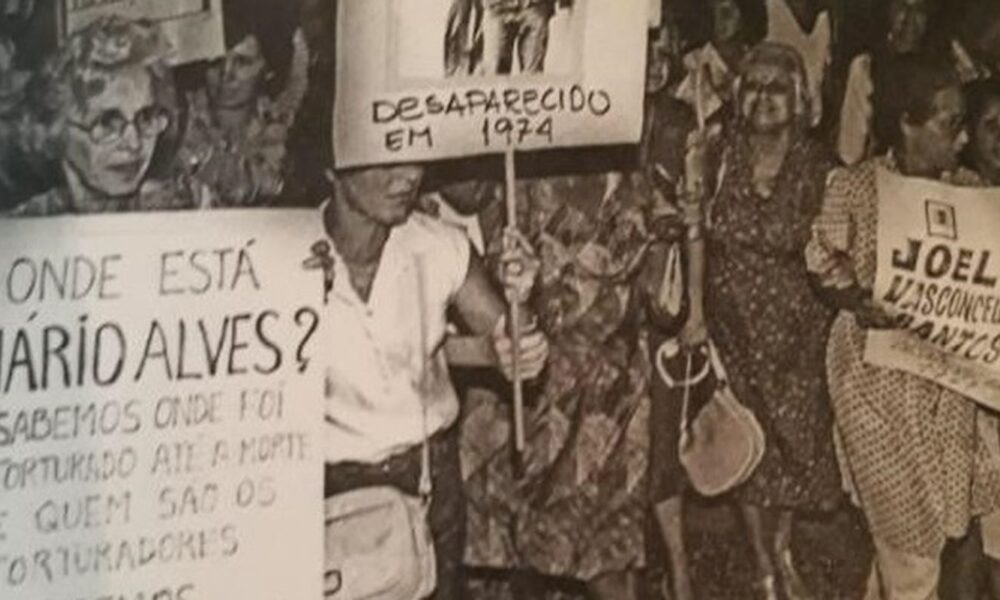 DESAPARECIDO
EM 1974
ONDE ESTÁ
MÁRIO ALVES?
SABEMOS ONDE FOI
TORTURADO ATÉ A MORTE
E QUEM SÃO OS
TORTURADORES
JOEL
VASCONCEL
SANTOS